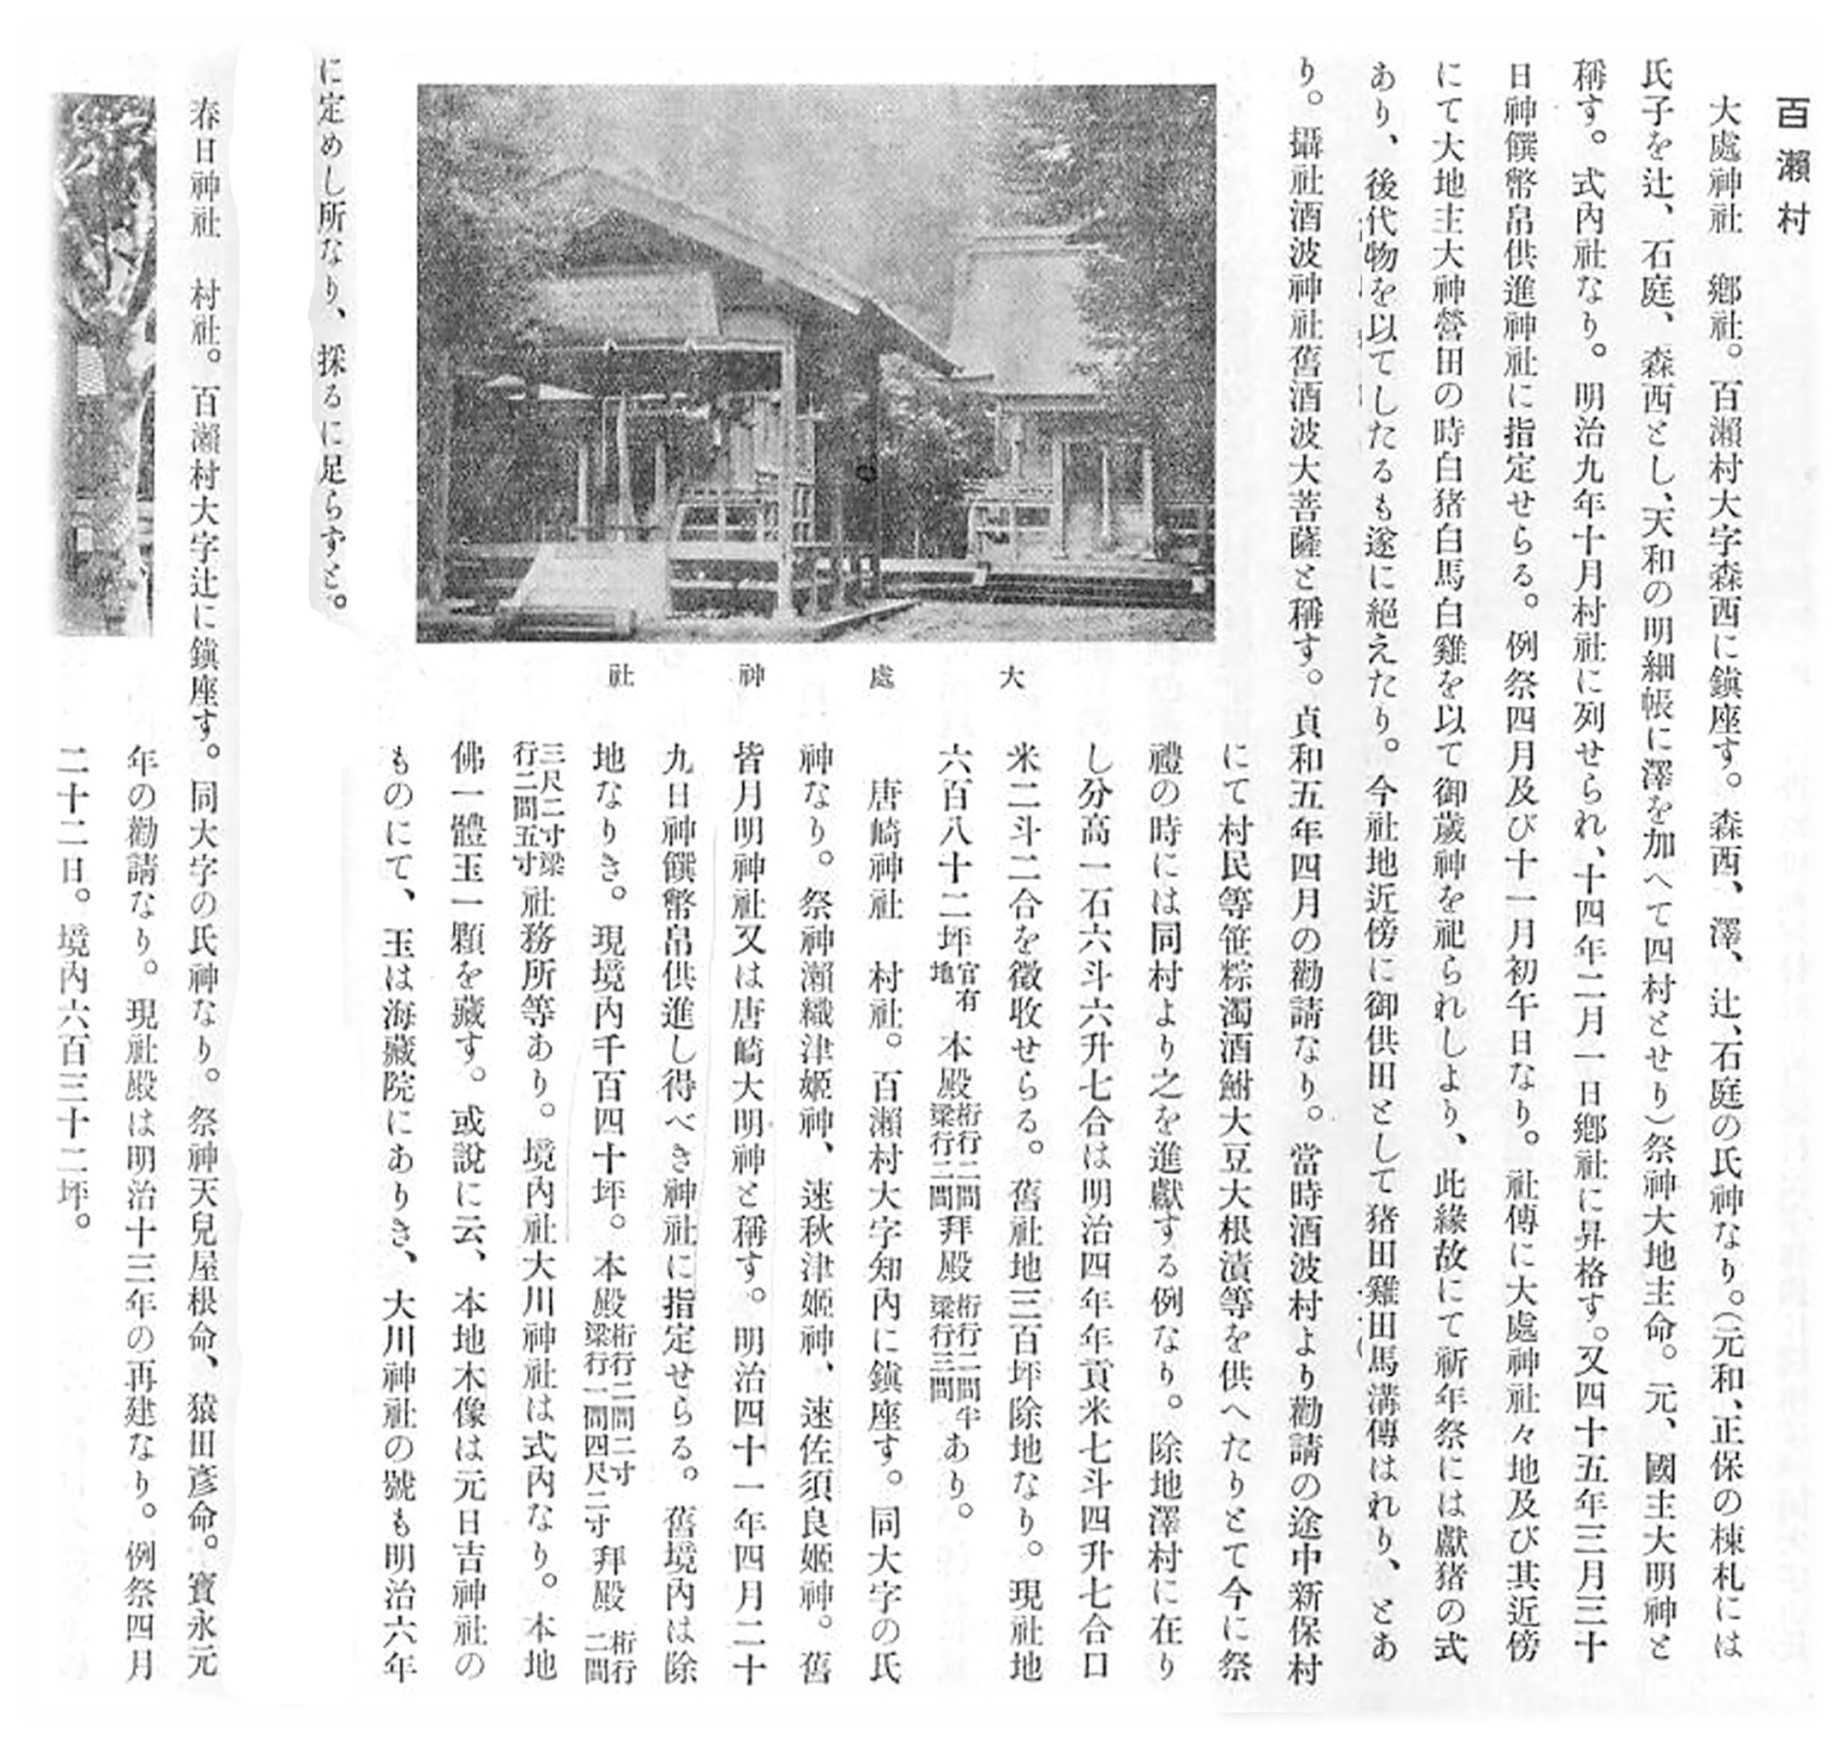 百瀨村
大處神社　鄕社。百瀨村大字森西に鎭座す。森西、澤、辻、石庭の氏神なり。（元和、正保の棟札には
氏子を辻、石庭、森西とし、天和の明細帳に澤を加へて四村とせり）祭神大地主命。元、國主大明神と
稱す。式內社なり。明治九年十月村社に列せられ、十四年二月一日鄕社に昇格す。又四十五年三月三十
日神饌幣帛供進神社に指定せらる。例祭四月及び十一月初午日なり。社傳に大處神社々地及び其近傍
にて大地主大神營田の時白猪白馬白雞を以て御歲神を祀られしより、此緣故にて祈年祭には獻猪の式
あり、後代物を以てしたるも遂に絕えたり。今社地近傍に御供田として猪田雞田馬溝傳はれり、とあ
り。攝社酒波神社舊酒波大菩薩と稱す。貞和五年四月の勸請なり。當時酒波村より勸請の途中新保村
にて村民等笹粽濁酒鮒大豆大根漬等を供へたりとて今に祭
禮の時には同村より之を進獻する例なり。除地澤村に在り
し分高一石六斗六升七合は明治四年年貢米七斗四升七合口
米二斗二合を徵收せらる。舊社地三百坪除地なり。現社地
六百八十二坪官有地　本殿桁行二間梁行二間拜殿桁行二間半梁行三間あり。
大處神社
唐崎神社　村社。百瀨村大字知內に鎭座す。同大字の氏
神なり。祭神瀨織津姬神、速秋津姬神、速佐須良姬神。舊
皆月明神社又は唐崎大明神と稱す。明治四十一年四月二十
九日神饌幣帛供進し得べき神社に指定せらる。舊境內は除
地なりき。現境內千百四十坪。本殿桁行二間二寸梁行一間四尺二寸拜殿桁行二間
三尺二寸梁行二間五寸社務所等あり。境內社大川神社は式內なり。本地
佛一體玉一顆を藏す。或說に云、本地木像は元日吉神社の
ものにて、玉は海藏院にありき、大川神社の號も明治六年
に定めし所なり、採るに足らずと。
春日神社　村社。百瀨村大字辻に鎭座す。同大字の氏神なり。祭神天兒屋根命、猿田彥命。寶永元
年の勸請なり。現社殿は明治十三年の再建なり。例祭四月
二十二日。境內六百三十二坪。